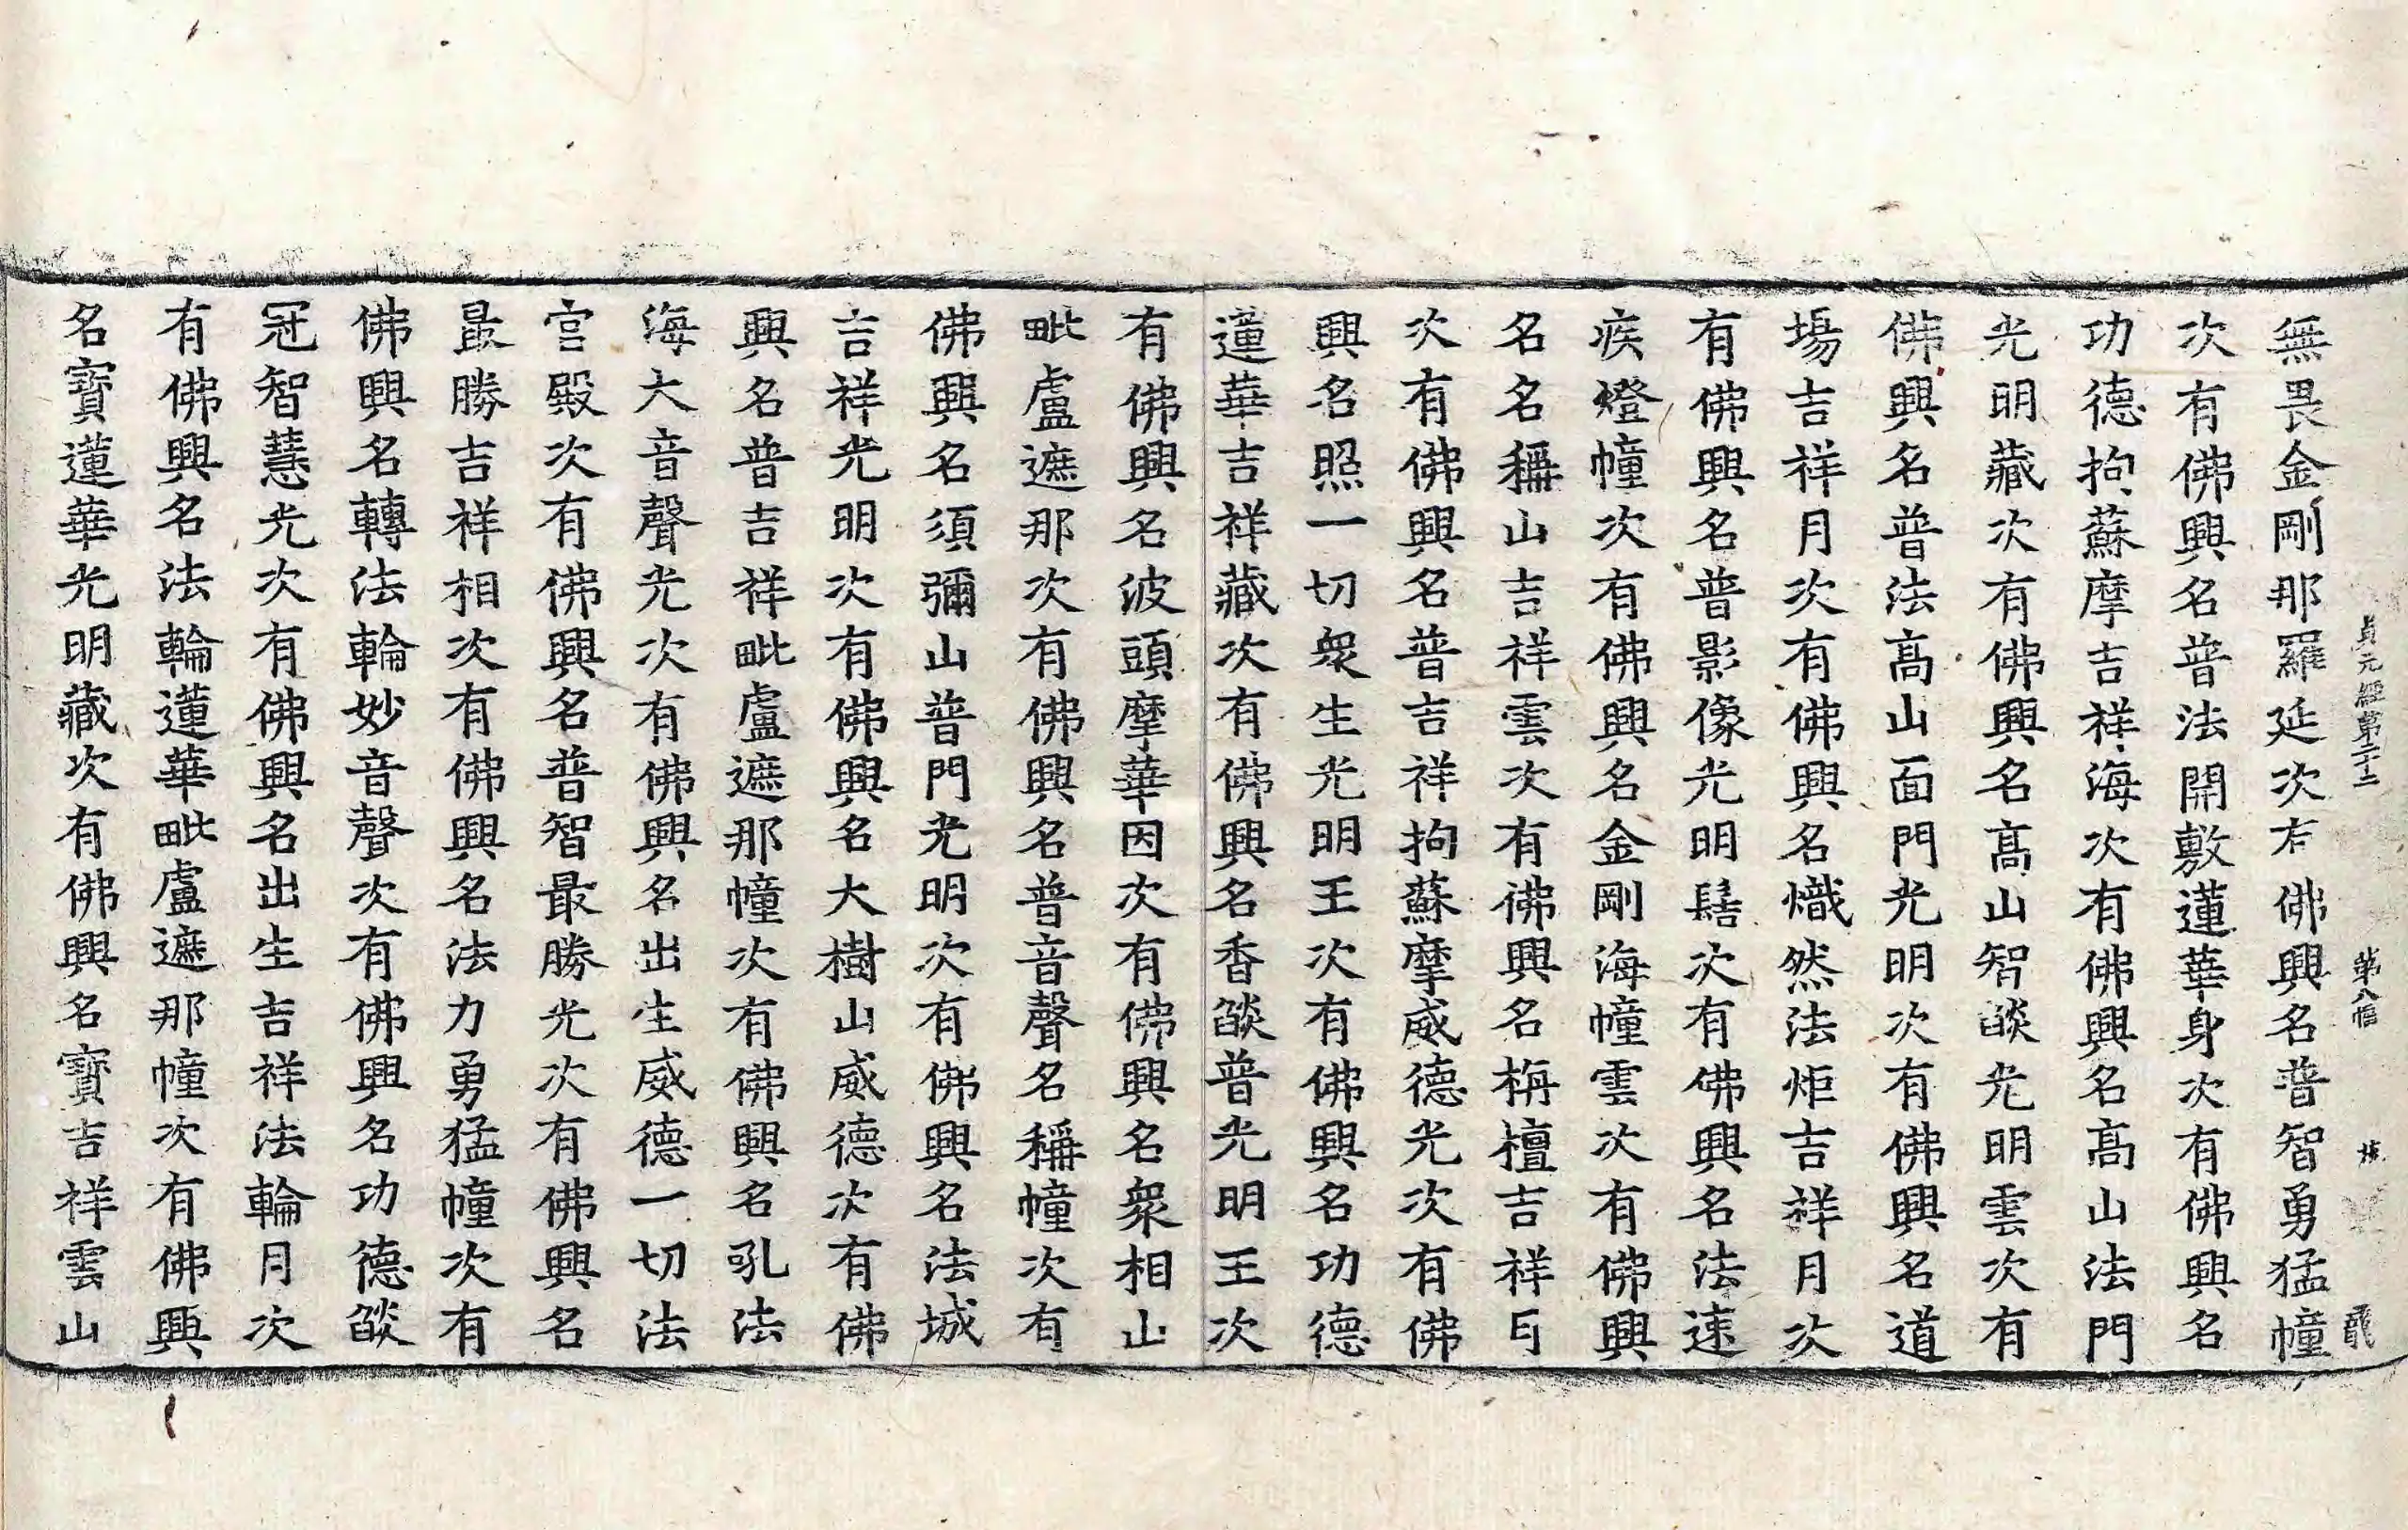 貞元經第二十二 第八幅 龍
無畏金剛那羅延次有佛興名普智勇猛幢
次有佛興名普法開敷蓮華身次有佛興名
功德拘蘇摩吉祥海次有佛興名高山法門
光明藏次有佛興名高山智燄光明雲次有
佛興名普法高山面門光明次有佛興名道
場吉祥月次有佛興名熾然法炬吉祥月次
有佛興名普影像光明髻次有佛興名法速
疾燈幢次有佛興名金剛海幢雲次有佛興
名名稱山吉祥雲次有佛興名栴檀吉祥月
次有佛興名普吉祥拘蘇摩威德光次有佛
興名照一切衆生光明王次有佛興名功德
蓮華吉祥藏次有佛興名香燄普光明王次
有佛興名波頭摩華因次有佛興名衆相山
毗盧遮那次有佛興名普音聲名稱幢次有
佛興名須彌山普門光明次有佛興名法城
吉祥光明次有佛興名大樹山威德次有佛
興名普吉祥毗盧遮那幢次有佛興名吼法
海大音聲光次有佛興名出生威德一切法
宮殿次有佛興名普智最勝光次有佛興名
最勝吉祥相次有佛興名法力勇猛幢次有
佛興名轉法輪妙音聲次有佛興名功德燄
冠智慧光次有佛興名出生吉祥法輪月次
有佛興名法輪蓮華毗盧遮那幢次有佛興
名寶蓮華光明藏次有佛興名寶吉祥雲山